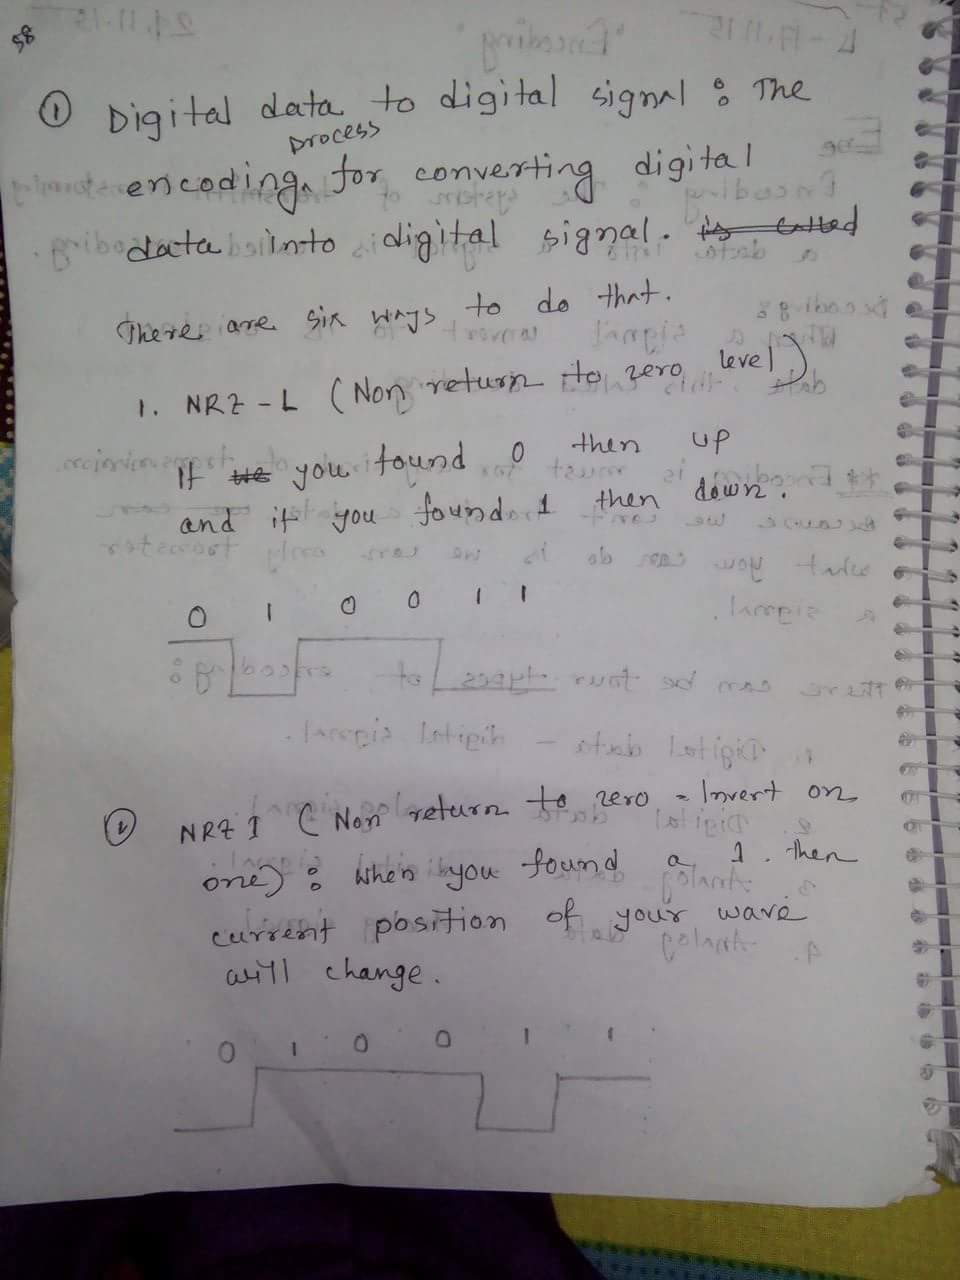 58
① Digital data to digital signal : The
encoding process for converting digital
data into digital signal. is called
There are six ways to do that.
1. NRZ - L (Non return to zero level)
If you found 0 then up
and if you found 1 then down.
0 1 0 0 1 1
② NRZ I (Non return to zero - Invert on
one) : When you found a 1. then
current position of your wave
will change.
0 1 0 0 1 1